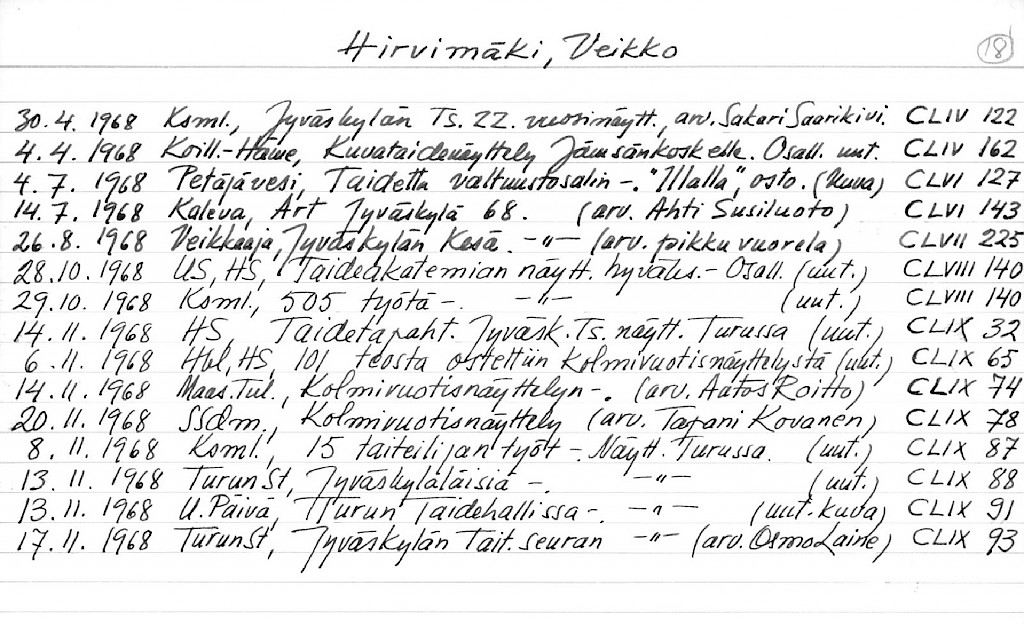 Hirvimäki, Veikko 18
30.4.1968 Ksml., Jyväskylän Ts. 22. vuosinäytt., arv. Sakari Saarikivi. CLIV 122
4.4.1968 Koill.-Häme, Kuvataidenäyttely Jämsänkoskelle. Osall. uut. CLIV 162
4.7.1968 Petäjävesi, Taidetta valtuustosaliin -. "Malla", osto. (kuva) CLVI 127
14.7.1968 Kaleva, Art Jyväskylä 68. (arv. Ahti Susiluoto) CLVI 143
26.8.1968 Veikkaaja, Jyväskylän Kesä. -"- (arv. pikku vuorela) CLVII 225
28.10.1968 US, HS, Taideakatemian näytt. hyväks. - Osall. (uut.) CLVIII 140
29.10.1968 Ksml., 505 työtä -. -"- (uut.) CLVIII 140
14.11.1968 HS, Taidetapaht. Jyväsk. Ts. näytt. Turussa (uut.) CLIX 32
6.11.1968 Hbl, HS, 101 teosta ostettiin Kolmivuotisnäyttelystä (uut.) CLIX 65
14.11.1968 Maas.Tul., Kolmivuotisnäyttelyn -. (arv. Aatos Roitto) CLIX 74
20.11.1968 SSdm., Kolmivuotisnäyttely (arv. Tapani Kovanen) CLIX 78
8.11.1968 Ksml., 15 taiteilijan työt -. Näytt. Turussa. (uut.) CLIX 87
13.11.1968 TurunSt, Jyväskyläläisiä -. -"- (uut.) CLIX 88
13.11.1968 U.Päivä, Turun Taidehallissa -. -"- (uut. kuva) CLIX 91
17.11.1968 TurunSt, Jyväskylän Tait. seuran -"- (arv. Osmo Laine) CLIX 93